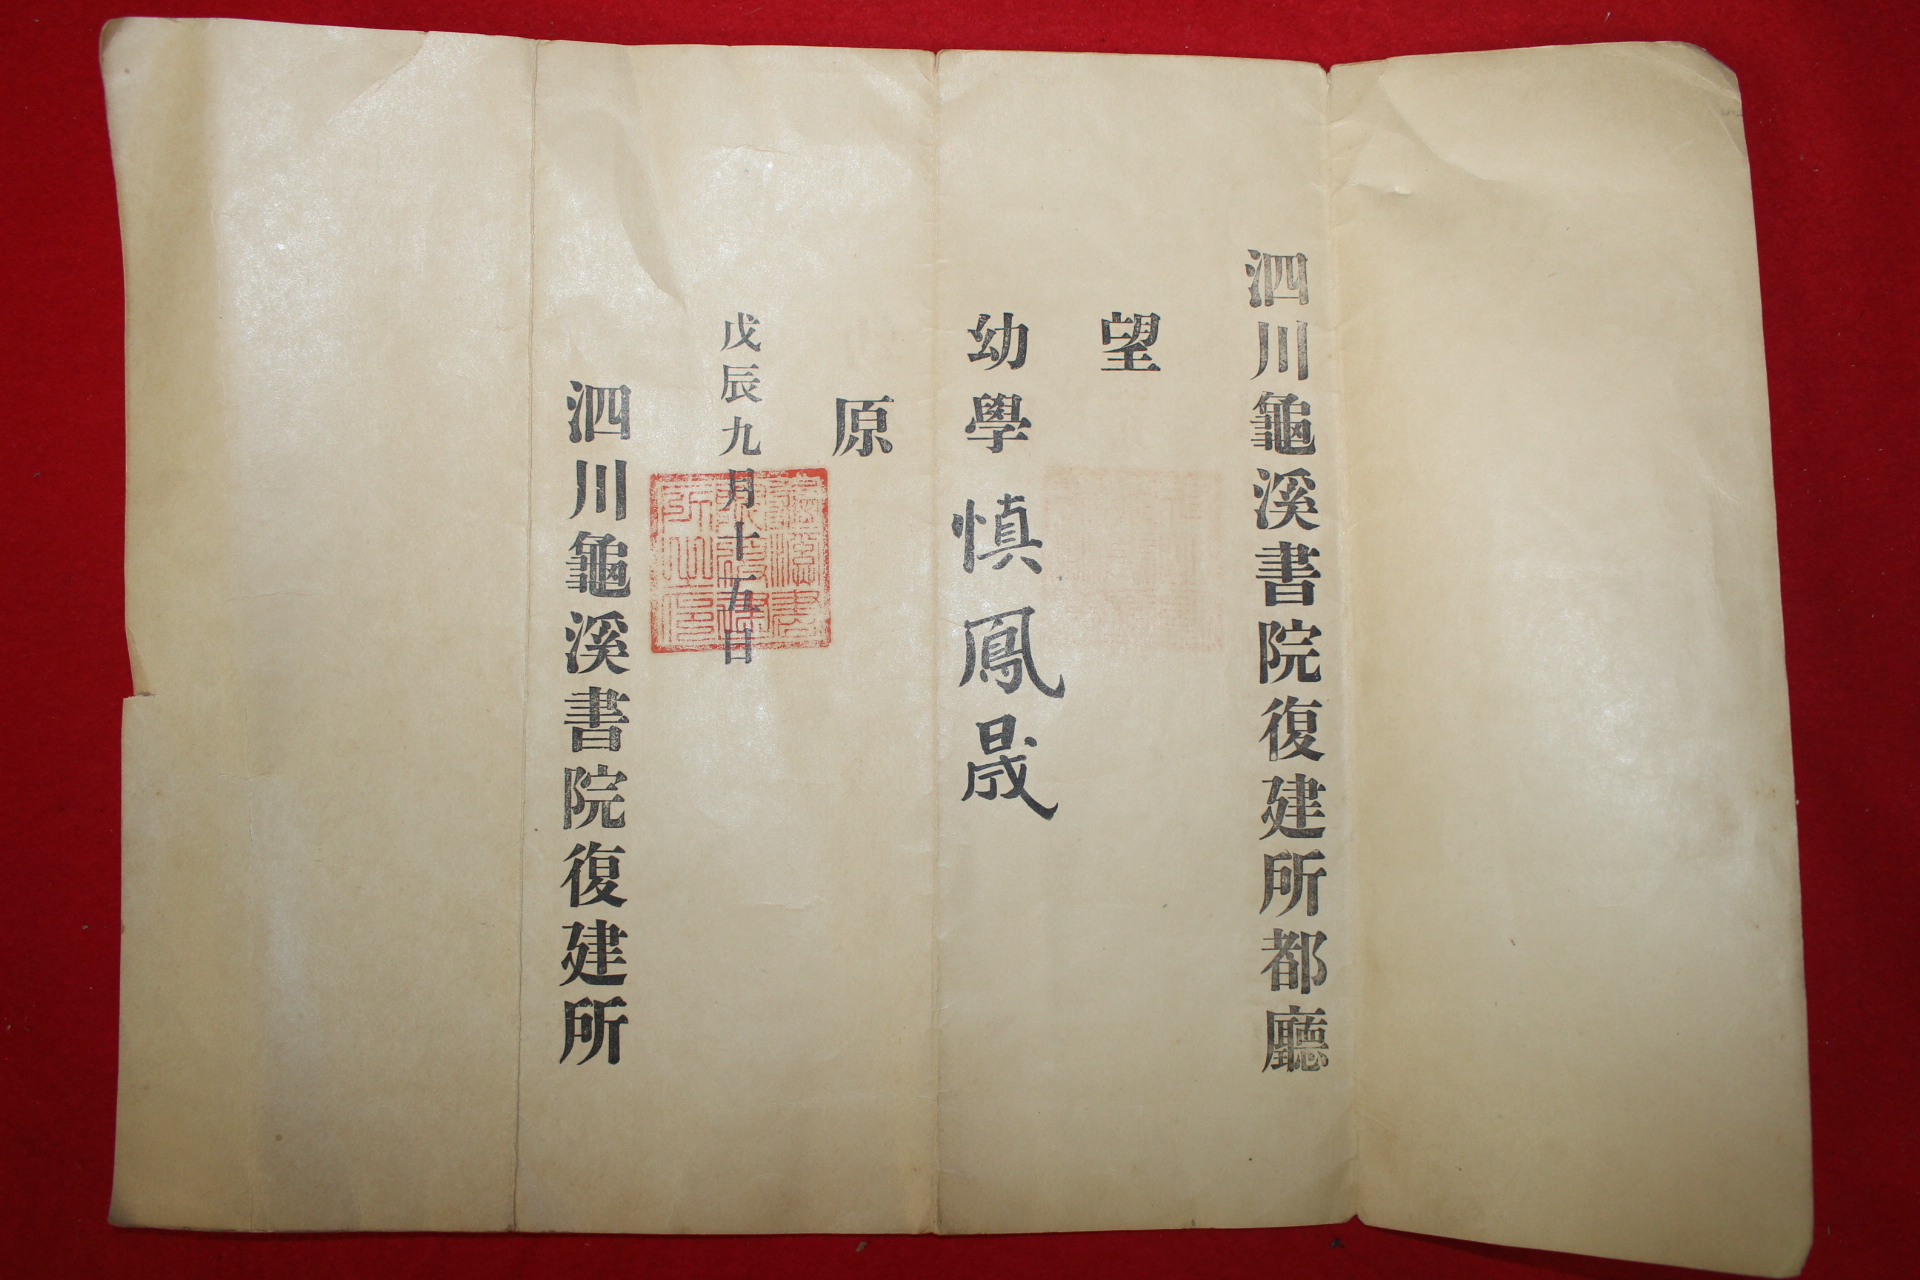 泗川龜溪書院復建所都廳
望
幼學慎鳳晟
原
戊辰九月十五日
泗川龜溪書院復建所